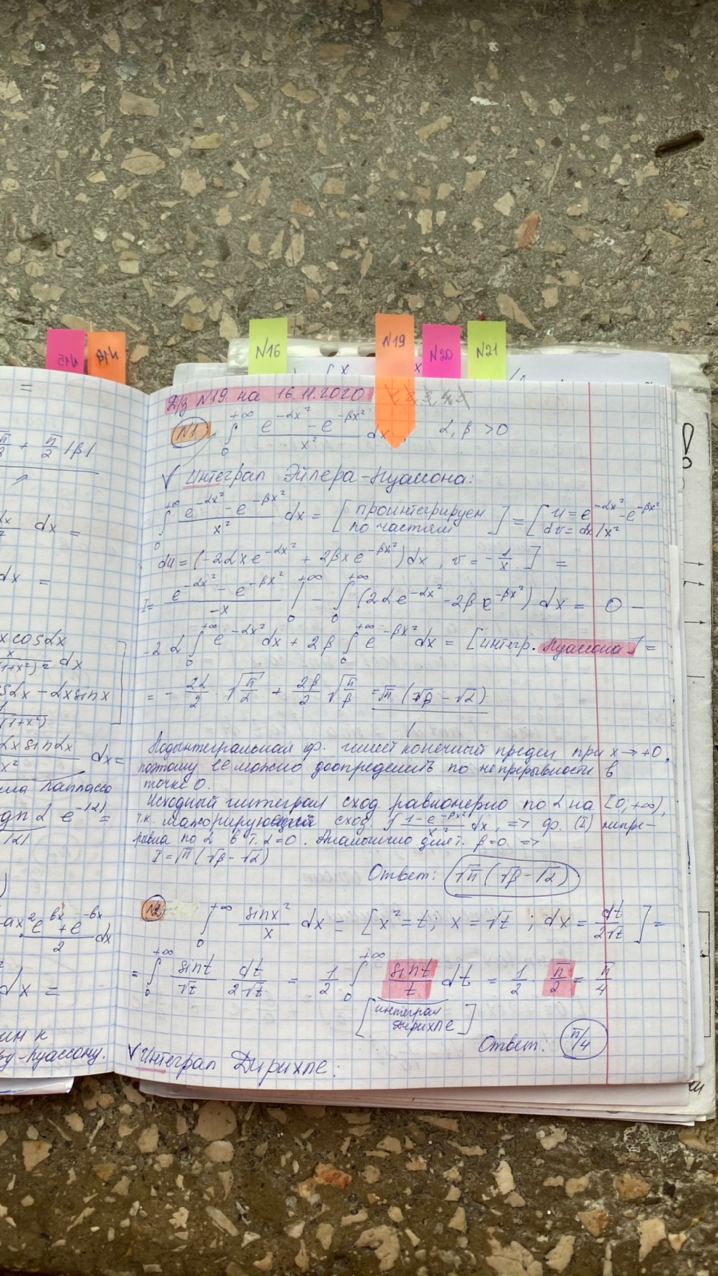 N16
N19
N20
N21
Д/з N19 на 16.11.2020
N1 ∫₀^{+∞} (e^{-αx²} - e^{-βx²})/x² dx, α, β > 0
✓ Интеграл Эйлера-Пуассона:
∫₀^{+∞} (e^{-αx²} - e^{-βx²})/x² dx = [проинтегрируем по частям] = [u = e^{-αx²} - e^{-βx²} dv = dx/x²
du = (-2αxe^{-αx²} + 2βxe^{-βx²})dx, v = -1/x] =
I = (e^{-αx²} - e^{-βx²})/(-x) |₀^{+∞} - ∫₀^{+∞} (2αe^{-αx²} - 2βe^{-βx²}) dx = 0 -
-2α ∫₀^{+∞} e^{-αx²} dx + 2β ∫₀^{+∞} e^{-βx²} dx = [интегр. Пуассона] =
= - 2α/2 · √(π/α) + 2β/2 √(π/β) = √π (√β - √α)
Подынтегральная ф. имеет конечный предел при x → +0,
поэтому её можно доопределить по непрерывности в
точке 0.
Исходный интеграл сход равномерно по α на [0, +∞),
т.к. мажорирующий сход ∫ (1 - e^{-βx²})/x² dx, => ф. (I) непре-
рывна по α в т. α = 0. Аналогично для т. β = 0 =>
I = √π (√β - √α)
Ответ: √π (√β - √α)
N2 ∫₀^{+∞} sinx²/x dx = [x² = t; x = √t; dx = dt/(2√t)] =
= ∫₀^{+∞} sint/√t dt/(2√t) = 1/2 ∫₀^{+∞} sint/t dt = 1/2 π/2 = π/4
[интеграл Дирихле]
Ответ: π/4
✓ Интеграл Дирихле:
+ π/2 |β|
dx =
dx =
x cosαx
dx
cosαx - αx sinx
αx sinαx
dx =
Лапласа
e^{-|α|} =
e^{bx} + e^{-bx}
2
dx
dx =
Пуассону.